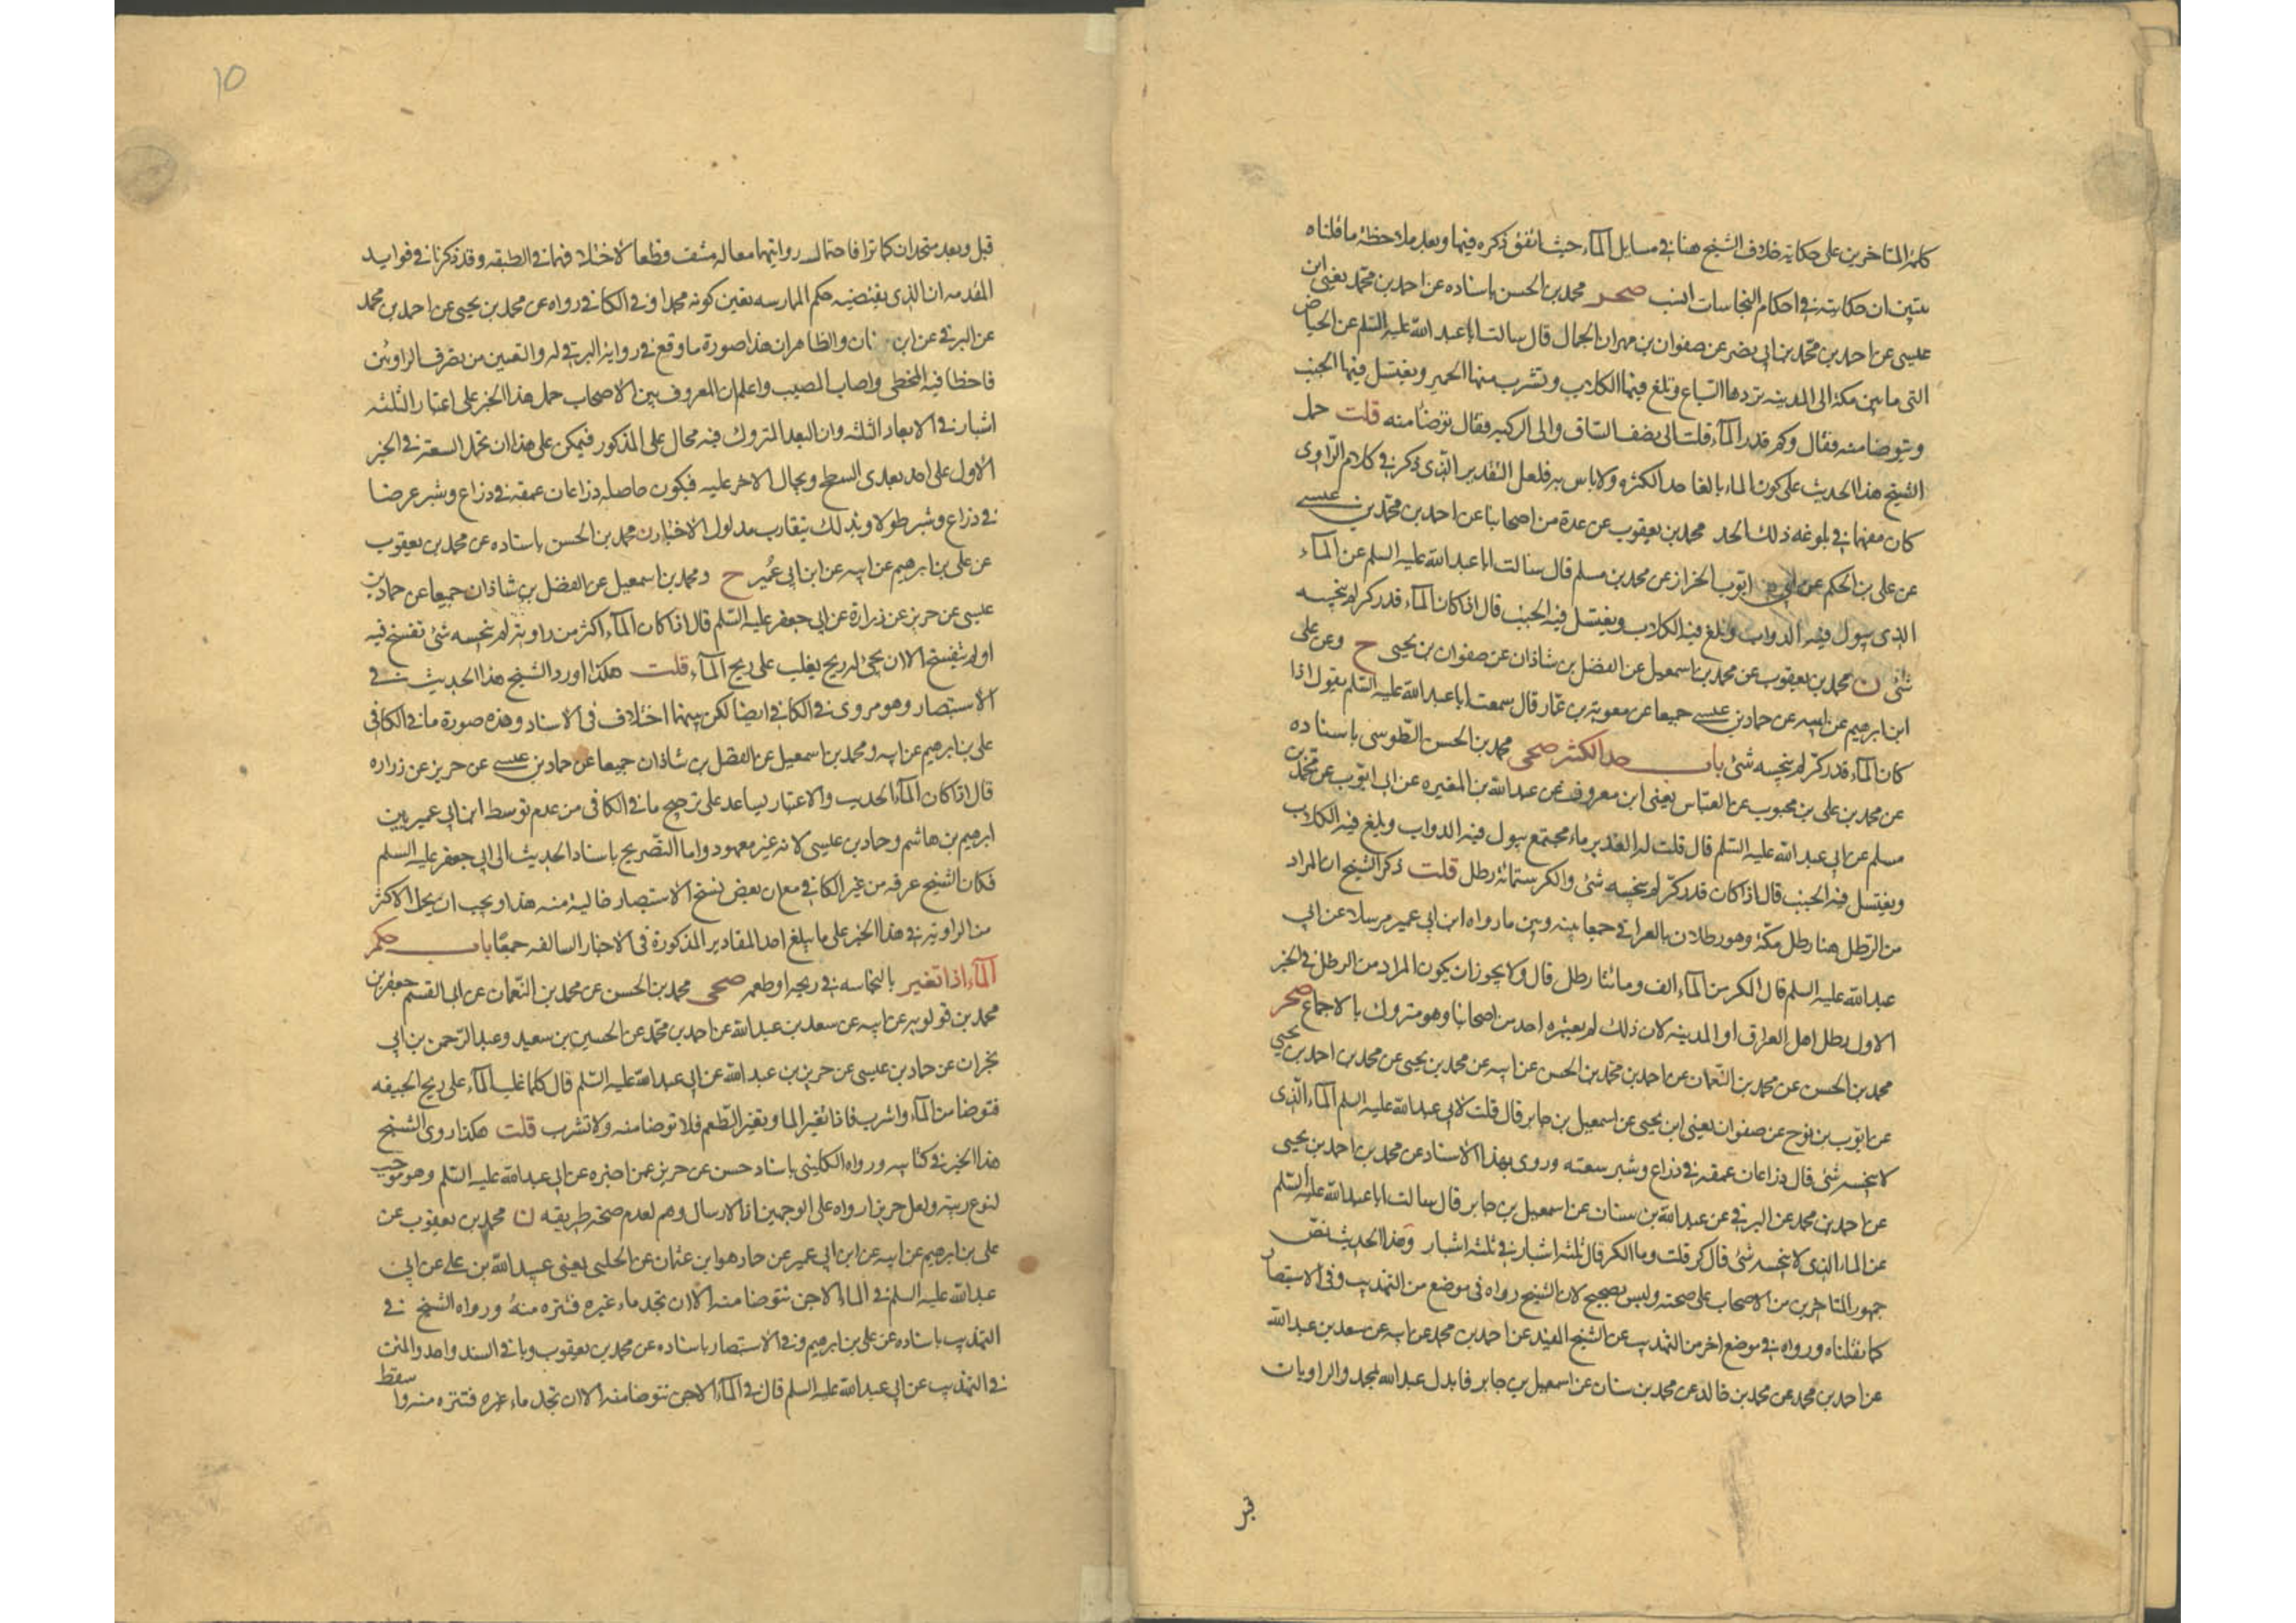 كلمة المتاخرين على حكاية خلاف الشيخ هنا في مسايل الماء حيث اتفق ذكره فيها وبعد ملاحظة ما قلناه
يتبين ان حكايته في احكام النجاسات انسب صحر محمد بن الحسن باسناده عن احمد بن محمد يعني ابن
عيسى عن احمد بن محمد بن ابي نصر عن صفوان بن مهران الجمال قال سالت ابا عبد الله عليه السلم عن الحياض
التي ما بين مكة الى المدينه تردها السباع وتلغ فيها الكلاب وتشرب منها الحمير ويغتسل فيها الجنب
ويتوضا منه فقال وكم قدر الماء قلت الى نصف الساق والى الركبه فقال توضا منه قلت حمل
الشيخ هذا الحديث على كون الماء بالغا حد الكثره ولا باس به فلعل التقدير الذي ذكر في كلام الراوي
كان مفهما في بلوغه ذلك الحد محمد بن يعقوب عن عدة من اصحابنا عن احمد بن محمد بن عيسى
عن علي بن الحكم عن ابي ايوب الخراز عن محمد بن مسلم قال سالت ابا عبد الله عليه السلم عن الماء
الذي تبول فيه الدواب وتلغ فيه الكلاب ويغتسل فيه الجنب قال اذا كان الماء قدر كر لم ينجسه
شئ ن محمد بن يعقوب عن محمد بن اسمعيل عن الفضل بن شاذان عن صفوان بن يحيى ح وعن علي
ابن ابرهيم عن ابيه عن حماد بن عيسى جميعا عن معوية بن عمار قال سمعت ابا عبد الله عليه السلم يقول اذا
كان الماء قدر كر لم ينجسه شئ باب حد الكثر صحي محمد بن الحسن الطوسي باسناده
عن محمد بن علي بن محبوب عن العباس يعني ابن معروف عن عبد الله بن المغيره عن ابي ايوب عن محمد بن
مسلم عن ابي عبد الله عليه السلم قال قلت له الغدير ماء مجتمع تبول فيه الدواب وتلغ فيه الكلاب
ويغتسل فيه الجنب قال اذا كان قدر كر لم ينجسه شئ والكر ستمائة رطل قلت ذكر الشيخ ان المراد
من الرطل هنا رطل مكة وهو رطلان بالعراقي جمعا بينه وبين ما رواه ابن ابي عمير مرسلا عن ابي
عبد الله عليه السلم قال الكر من الماء الف ومائتا رطل قال ولا يجوز ان يكون المراد من الرطل في الخبر
الاول رطل اهل العراق او المدينه لان ذلك لم يعتبره احد من اصحابنا وهو متروك بالاجماع صحر
محمد بن الحسن عن محمد بن النعمان عن احمد بن محمد بن الحسن عن ابيه عن محمد بن يحيى عن محمد بن احمد بن يحيى
عن ايوب بن نوح عن صفوان يعني ابن يحيى عن اسمعيل بن جابر قال قلت لابي عبد الله عليه السلم الماء الذي
لا ينجسه شئ قال ذراعان عمقه في ذراع وشبر سعته وروى بهذا الاسناد عن محمد بن احمد بن يحيى
عن احمد بن محمد عن البرقي عن عبد الله بن سنان عن اسمعيل بن جابر قال سالت ابا عبد الله عليه السلم
عن الماء الذي لا ينجسه شئ قال كر قلت وما الكر قال ثلثه اشبار في ثلثه اشبار وهذا الحديث نص
جمهور المتاخرين من الاصحاب على صحته وليس بصحيح لان الشيخ رواه في موضع من التهذيب وفي الاستبصار
كما نقلناه ورواه في موضع اخر من التهذيب عن الشيخ المفيد عن احمد بن محمد عن ابيه عن سعد بن عبد الله
عن احمد بن محمد عن محمد بن خالد عن محمد بن سنان عن اسمعيل بن جابر فابدل عبد الله بمحمد والراويان
قبل
10
قبل وبعد متحدان كما ترا فاحتمال روايتهما معا له منتف قطعا لاختلافهما في الطبقه وقد ذكرنا في فوايد
المقدمه ان الذي يقتضيه حكم الممارسه تعين كونه محمدا وفي الكافي رواه عن محمد بن يحيى عن احمد بن محمد
عن البرقي عن ابن سنان والظاهر ان هذا صورة ما وقع في رواية البرقي له والتعيين من تصرف الراويين
فاخطا فيه المخطي واصاب المصيب واعلم ان المعروف بين الاصحاب حمل هذا الخبر على اعتبار الثلثه
اشبار في الابعاد الثلثه وان البعد المتروك فيه محال على المذكور فيمكن على هذا ان تحمل السعة في الخبر
الاول على احد بعدي السطح ويحال الاخر عليه فيكون حاصله ذراعان عمقه في ذراع وشبر عرضا
في ذراع وشبر طولا وبذلك يتقارب مدلول الاخبار ن محمد بن الحسن باسناده عن محمد بن يعقوب
عن علي بن ابرهيم عن ابيه عن ابن ابي عمير ح ومحمد بن اسمعيل عن الفضل بن شاذان جميعا عن حماد بن
عيسى عن حريز عن زرارة عن ابي جعفر عليه السلم قال اذا كان الماء اكثر من راوية لم ينجسه شئ تفسخ فيه
او لم يتفسخ الا ان يجئ له ريح يغلب على ريح الماء قلت هكذا اورد الشيخ هذا الحديث في
الاستبصار وهو مروي في الكافي ايضا لكن بينهما اختلاف في الاسناد وهذه صورة ما في الكافي
علي بن ابرهيم عن ابيه ومحمد بن اسمعيل عن الفضل بن شاذان جميعا عن حماد بن عيسى عن حريز عن زراره
قال اذا كان الماء الحديث والاعتبار يساعد على ترجيح ما في الكافي من عدم توسط ابن ابي عمير بين
ابرهيم بن هاشم وحماد بن عيسى لانه غير معهود واما التصريح باسناد الحديث الى ابي جعفر عليه السلم
فكان الشيخ عرفه من غير الكافي مع ان بعض نسخ الاستبصار خالية منه هذا ويجب ان يحمل الاكثر
من الراويه في هذا الخبر على ما يبلغ احد المقادير المذكورة في الاخبار السالفه جمعا باب حكم
الماء اذا تغير بالنجاسه في ريحه او طعمه صحي محمد بن الحسن عن محمد بن النعمان عن ابي القسم جعفر بن
محمد بن قولويه عن ابيه عن سعد بن عبد الله عن احمد بن محمد عن الحسين بن سعيد وعبد الرحمن بن ابي
نجران عن حماد بن عيسى عن حريز بن عبد الله عن ابي عبد الله عليه السلم قال كلما غلب الماء على ريح الجيفه
فتوضا من الماء واشرب فاذا تغير الما وتغير الطعم فلا توضا منه ولا تشرب قلت هكذا روى الشيخ
هذا الخبر في كتابيه ورواه الكليني باسناد حسن عن حريز عمن اخبره عن ابي عبد الله عليه السلم وهو موجب
لنوع ريبة ولعل حريزا رواه على الوجهين اذ الارسال وهم لعدم صحة طريقه ن محمد بن يعقوب عن
علي بن ابرهيم عن ابيه عن ابن ابي عمير عن حماد هو ابن عثمان عن الحلبي يعني عبيد الله بن علي عن ابي
عبد الله عليه السلم في الماء الاجن تتوضا منه الا ان تجد ماء غيره فتنزه منه ورواه الشيخ في
التهذيب باسناده عن علي بن ابرهيم وفي الاستبصار باسناده عن محمد بن يعقوب وباقي السند واحد والمتن
في التهذيب عن ابي عبد الله عليه السلم قال في الماء الاجن تتوضا منه الا ان تجد ماء غيره فتنزه منه وا سقط